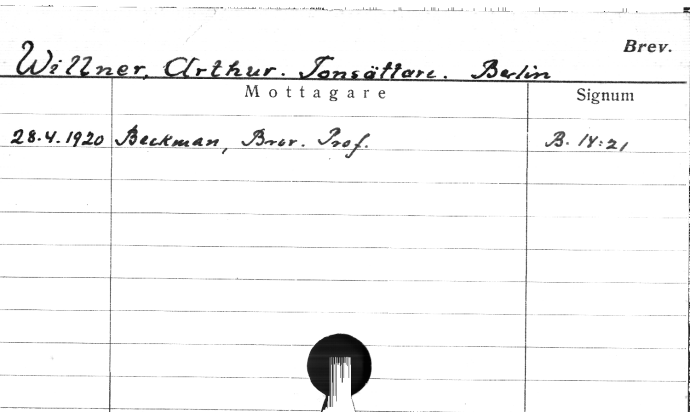 Brev.
Willner, Arthur. Tonsättare. Berlin
Mottagare Signum
28.4.1920 Beckman, Bror. Prof. B. 14:21